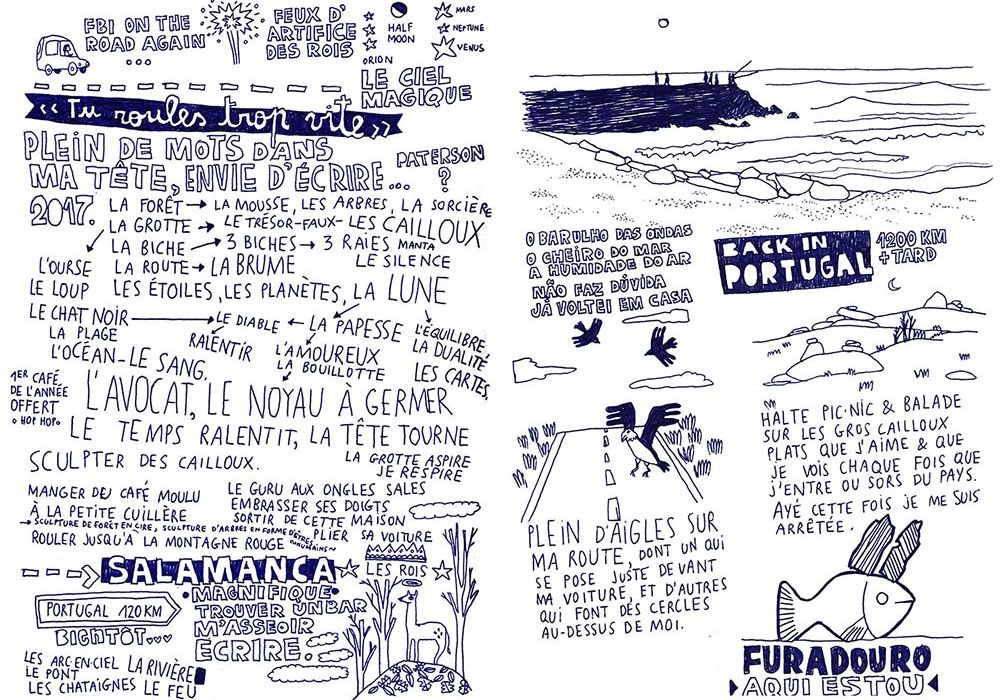 FBI ON THE
ROAD AGAIN
...
FEUX D'
ARTIFICE
DES ROIS
HALF
MOON
MARS
NEPTUNE
VENUS
ORION
LE CIEL
MAGIQUE
‹‹ Tu roules trop vite ››
PLEIN DE MOTS DANS
MA TÊTE, ENVIE D'ÉCRIRE...
PATERSON
?
2017.
LA FORÊT → LA MOUSSE, LES ARBRES, LA SORCIÈRE
LA GROTTE → LE TRÉSOR-FAUX-LES CAILLOUX
LA BICHE → 3 BICHES → 3 RAIES MANTA
L'OURSE LA ROUTE → LA BRUME LE SILENCE
LE LOUP LES ÉTOILES, LES PLANÈTES, LA LUNE
LE CHAT NOIR → LE DIABLE ← LA PAPESSE
L'ÉQUILIBRE,
LA DUALITÉ,
LES CARTES,
LA PLAGE
RALENTIR
L'AMOUREUX
LA BOUILLOTTE
L'OCÉAN-LE SANG.
1ER CAFÉ
DE L'ANNÉE
OFFERT
HOP HOP
L'AVOCAT, LE NOYAU À GERMER
LE TEMPS RALENTIT, LA TÊTE TOURNE
SCULPTER DES CAILLOUX.
LA GROTTE ASPIRE
JE RESPIRE
MANGER DU CAFÉ MOULU
À LA PETITE CUILLÈRE
LE GURU AUX ONGLES SALES
EMBRASSER SES DOIGTS
SORTIR DE CETTE MAISON
→ SCULPTURE DE FORÊT EN CIRE, SCULPTURE D'ARBRES EN FORME D'ÊTRES HUMAINS
PLIER SA VOITURE
ROULER JUSQU'À LA MONTAGNE ROUGE
SALAMANCA
LES ROIS
PORTUGAL 120KM
BIENTÔT...
MAGNIFIQUE
TROUVER UN BAR
M'ASSEOIR
ÉCRIRE.
LES ARC-EN-CIEL LA RIVIÈRE
LE PONT
LES CHATAIGNES LE FEU
O BARULHO DAS ONDAS
O CHEIRO DO MAR
A HUMIDADE DO AR
NÃO FAZ DÚVIDA
JÁ VOLTEI EM CASA
BACK IN
PORTUGAL
1200 KM
+ TARD
PLEIN D'AIGLES SUR
MA ROUTE, DONT UN QUI
SE POSE JUSTE DEVANT
MA VOITURE, ET D'AUTRES
QUI FONT DES CERCLES
AU-DESSUS DE MOI.
HALTE PIC-NIC & BALADE
SUR LES GROS CAILLOUX
PLATS QUE J'AIME & QUE
JE VOIS CHAQUE FOIS QUE
J'ENTRE OU SORS DU PAYS.
AYÉ CETTE FOIS JE ME SUIS
ARRÊTÉE.
FURADOURO
AQUI ESTOU